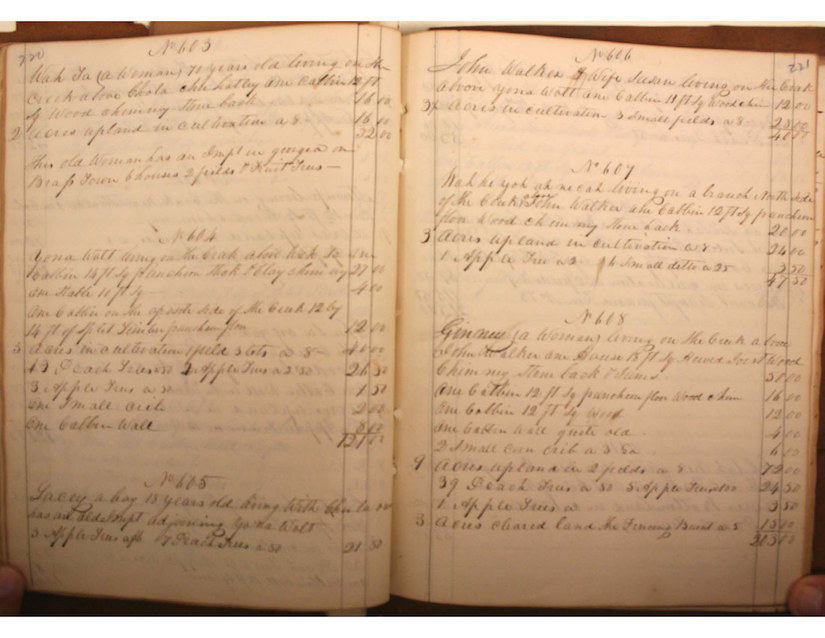 220
No 603
Wah Ta (a Woman) 70 years old living on the
Creek above Chota Chu hatley One Cabbin 12 ft
Sq Wood Chimny Stone back 16 00
2 Acres upland in cultivation a 8 16 00
32 00
This old Woman has an Impt in georgia on
Town 6 houses 2 fields & Fruit Trees
No 604
Yona Wott living on the Creek above Wah Ta One
Cabbin 14 ft Sq puncheon Stick & Clay Chimny 27 00
One Stable 11 ft Sq 4 00
One Cabbin on the oposite side of the Creek 12 by
14 ft of Split Timber puncheon floor 12 00
5 Acres in cultivation 1 field 3 lots a 8 40 00
43 Peach Trees 2 Apple Trees a 26 50
3 Apple Trees a 50 1 50
One Small Crib 2 00
One Cabbin Wall
No 605
Lacey a boy 18 years old living With
has an old Impt adjoining Yona Wott
3 Apple Trees 7 Peach Trees a 50 21 50
221
No 606
John Walker & Wife Susan living on the Creek
above Yona Wott One Cabbin 12 ft Sq Wood Chim 12 00
3½ Acres in cultivation 3 Small fields a 8 28 00
40 00
No 607
living on a branch North side
of the Creek John Walker One Cabbin 12 ft Sq puncheon
floor Wood Chimny Stone back 20 00
3 Acres upland in cultivation a 8 24 00
1 Apple Tree a 2 Small ditto a 25 3 50
47 50
No 608
(a Woman) living on the Creek above
John Walker One House 18 ft Sq Hewed Wood
Chimny Stone back & Jams 50 00
One Cabbin 12 ft Sq puncheon floor Wood Chim 16 00
One Cabbin 12 ft Sq 12 00
One Cabbin Wall quite old 4 00
2 Small Corn Crib a 3 6 00
9 Acres upland in 2 fields a 8 72 00
39 Peach Trees a 50 5 Apple Trees 24 50
1 Apple Tree a 3 50
3 Acres cleared land the Fencing Burnt a 5 15 00
203 00